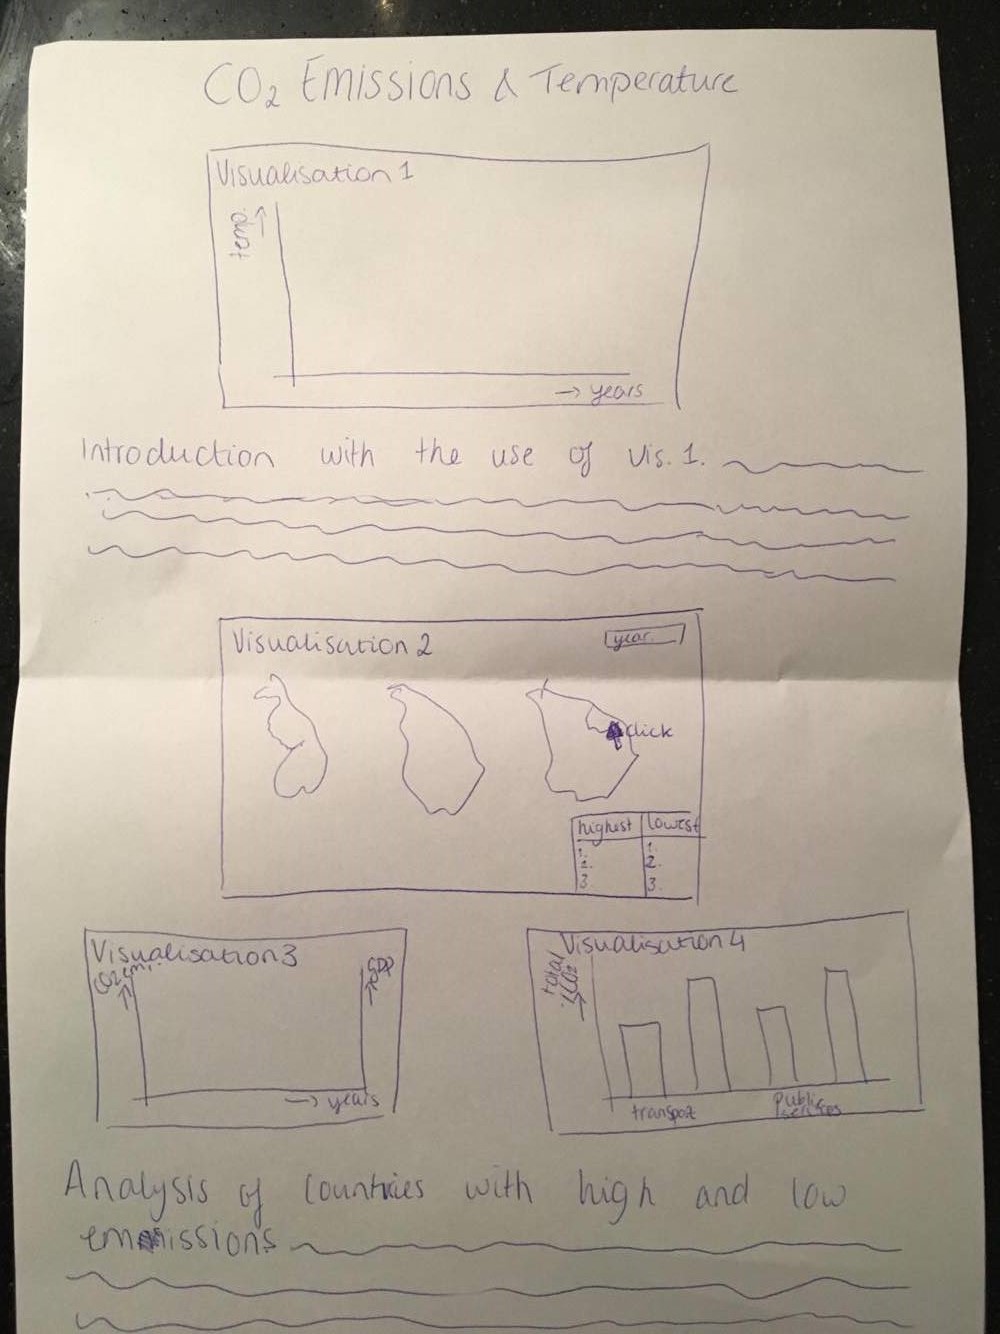 CO₂ Emissions & Temperature
Visualisation 1
temp. →
→ years
Introduction with the use of Vis. 1.
Visualisation 2
year
click
highest lowest
1. 1.
2. 2.
3. 3.
Visualisation 3
CO2 emi. →
GDP →
→ years
Visualisation 4
total CO2 →
transport
public services
Analysis of countries with high and low
emissions